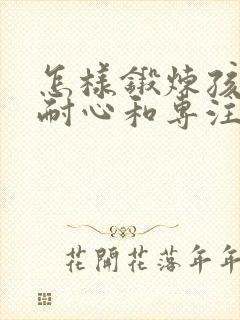 怎樣鍛煉孩
耐心和專注
花開花落年年